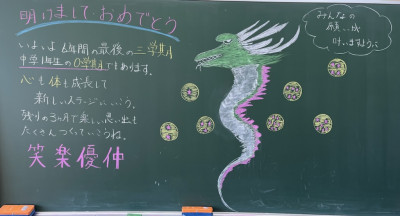 明けまして おめでとう
いよいよ 6年間の最後の三学期!
中学1年生の0学期でもあります。
心も体も成長して
新しいステージにいこう。
残りの3ヶ月で楽しい思い出も
たくさんつくっていこうね。
笑楽優仲
みんなの
願い成
叶いますように